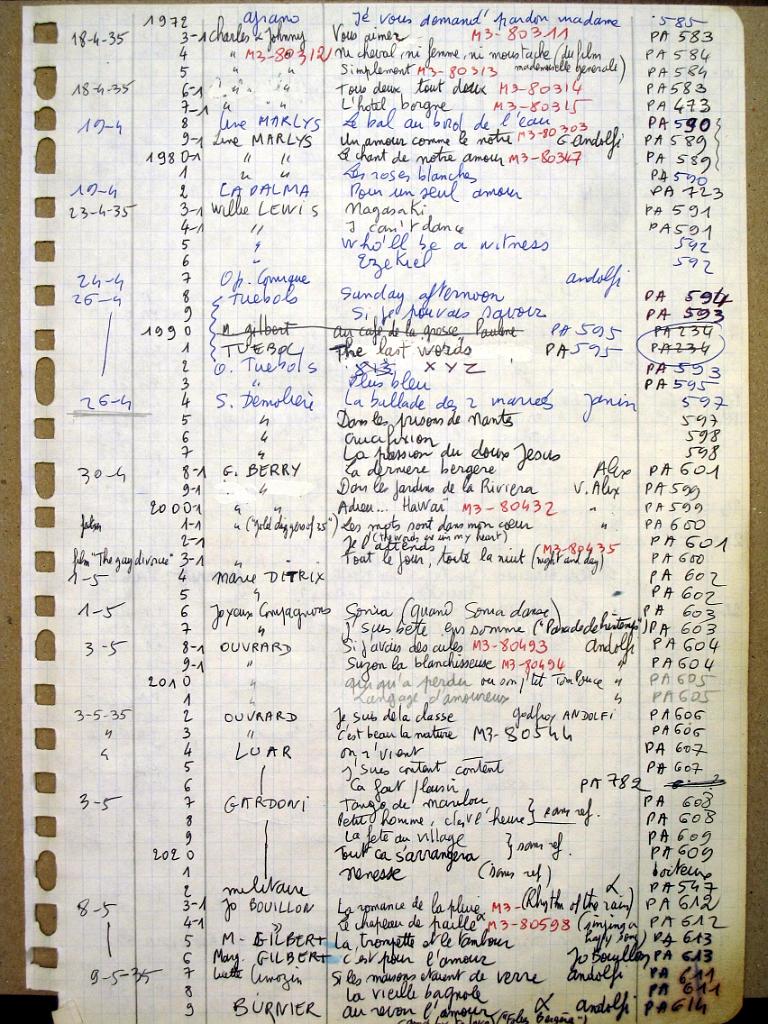 1972 Je vous demand' pardon madame 585
18-4-35 3-1 Charles & Johnny Vous aimer M3-80311 PA 583
4 " M3-80312 Ni cheval, ni femme, ni moustache (du film PA 584
5 " " Simplement M3-80313 mademoiselle generale) PA 584
18-4-35 6-1 " " Tous deux, tout doux M3-80314 PA 583
7-1 " " L'hotel borgne M3-80315 PA 473
19-4 8 Line MARLYS Le bal au bord de l'eau PA 590
9-1 Line MARLYS Un amour comme le notre M3-80303 G. Andolfi PA 589
1980-1 " " Le chant de notre amour M3-80347 PA 589
1 " " Les roses blanches PA 590
19-4 2 CADALMA Pour un seul amour PA 723
23-4-35 3-1 Willie LEWIS Nagasaki PA 591
4-1 " I can't dance PA 591
5 " Who'll be a witness 592
6 " Ezekiel 592
24-4 7 Op. Comique andolfi
26-4 8 Tuebols Sunday afternoon PA 594
9 Si je pouvais savoir PA 593
1990 M. gilbert au café de la grosse Pauline PA 595 PA 234
1 TUEBOLS The last words PA 595 PA 234
2 O. Tuebols XYZ PA 593
3 " Plus bleu PA 595
26-4 4 S. Demolière La ballade des 2 mariés Janin 597
5 " Dans les prisons de Nantes 597
6 " Crucifixion 598
7 " La passion du doux Jesus 598
30-4 8-1 G. BERRY La derniere bergere Alix PA 601
9-1 " Dans les jardins de la Riviera V. Alix PA 599
2000-1 " " Adieu... Hawaï M3-80432 " PA 599
film 1-1 " ("Gold diggers of 35") Les mots sont dans mon coeur " PA 600
2-1 Je t'attends (the words are in my heart) PA 601
film "The gay divorcee" 3-1 " " Tout le jour, toute la nuit (night and day) M3-80435 PA 600
1-5 4 Marie DITRIX PA 602
5 " PA 602
1-5 6 Joyeux Compagnons Sonia (Quand Sonia danse) PA 603
7 " J'suis bête en somme ("Parade de printemps") PA 603
3-5 8-1 OUVRARD Si j'avais des ailes M3-80493 andolfi PA 604
9-1 " Suzon la blanchisseuse M3-80494 " PA 604
2010 " " PA 605
1 " Langage d'amoureux " PA 605
3-5-35 2 OUVRARD Je suis de la classe godfroy ANDOLFI PA 606
" 3 " c'est beau la nature M3-80544 PA 606
" 4 LUAR on r'vient PA 607
5 J'suis content content PA 607
6 Ca fait plaisir PA 782
3-5 7 GARDONI Tango de marilou } sans ref. PA 608
8 Petit homme, c'est l'heure PA 608
9 La fete au village } sans ref. PA 609
2020 Tout ca s'arrangera PA 609
1 Nenesse (sans ref)
2 militaire PA 547
8-5 3-1 Jo BOUILLON La romance de la pluie M3- (Rhythm of the rain) PA 612
4-1 " Le chapeau de paille M3-80598 (singing a happy song) PA 612
5 M. GILBERT La trompette et le tambour PA 613
6 Marg. GILBERT c'est pour l'amour Jo Bouillon PA 613
9-5-35 7 Lucette Limozin Si les maisons etaient de verre andolfi PA 611
8 La vieille bagnole PA 611
9 BURNIER au revoir l'amour andolfi PA 614
("Folies Bergère")